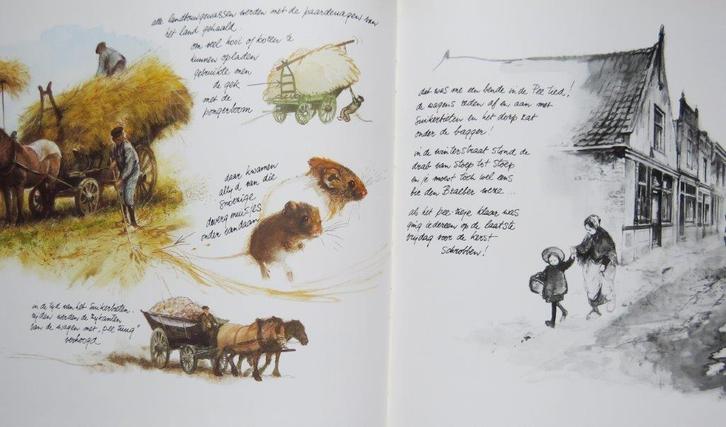 alle landbouwgewassen werden met de paardewagen van
het land gehaald.
om veel hooi of koren te
kunnen opladen
gebruikte men
de gek
met de
pongerboom
daar kwamen
altyd van die
dwergmuisjes
onder vandaan
in de tyd van het suikerbieten
ryden werden de zykanten
van de wagen met „pee tuug"
verhoogd
dat was me een bende in de Pee Tied!
de wagens reden af en aan met
suikerbieten en het dorp zat
onder de bagger!
in de winterstraat stond de
drab van stoep tot stoep
en je moest toch wel eens
bie den Braeber weze...
als het pee klaar was
ging iedereen op de laatste
vrydag voor de kerst
schrobben!